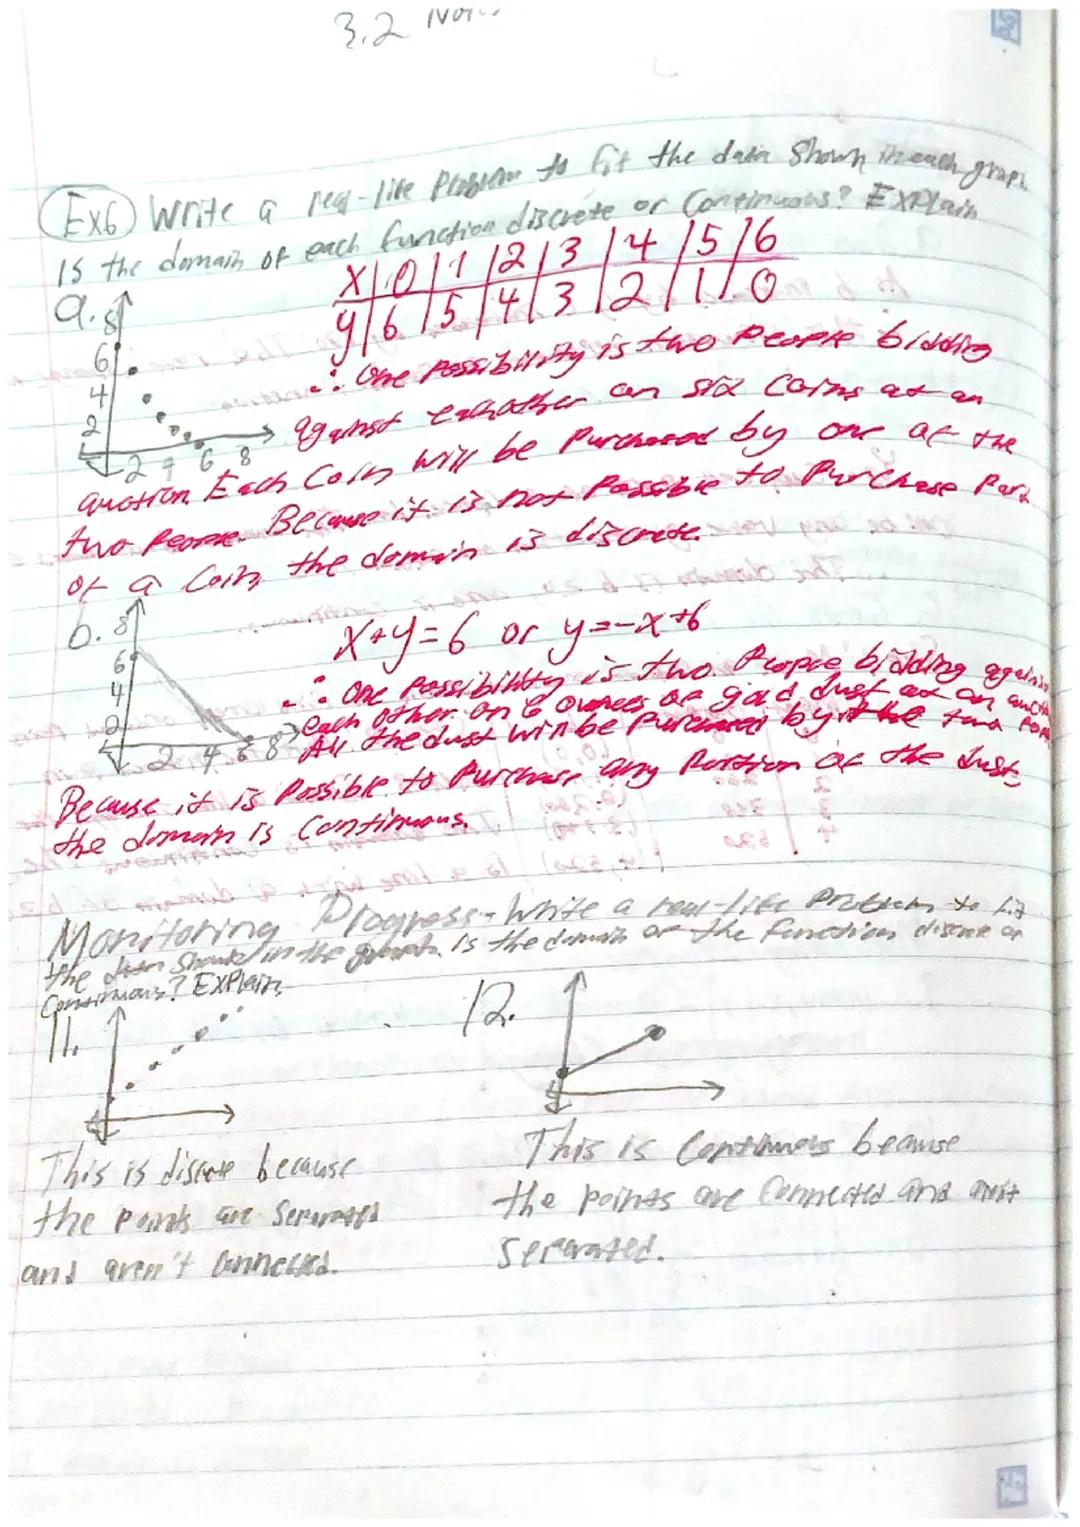 3.2 Notes
Ex6) Write a real-life Problem to fit the data shown in each graph.
Is the domain of each function discrete or Continuous? Explain
x | 0 | 1 | 2 | 3 | 4 | 5 | 6
y | 6 | 5 | 4 | 3 | 2 | 1 | 0
a.
8
6
4
2
2 4 6 8
∴ One Possibility is two People bidding
against eachother on six Coins at an
auction. Each Coin will be Purchased by one of the
two People. Because it is not Possible to Purchase Part
of a Coin, the domain is discrete.
b.
8
6
4
2
2 4 6 8
x+y=6 or y=-x+6
∴ One Possibility is two People bidding against
each other on 6 ounces of gold dust at an auction
All the dust will be Purchased by the two
Because it is Possible to Purchase any Portion of the dust,
the domain is Continuous.
Monitoring Progress - Write a real-life Problem to fit
the data shown in the graph. Is the domain of the function discrete or
Continuous? Explain
11.
12.
This is discrete because
the points are Separated
and aren't Connected.
This is Continuous because
the points are Connected and aren't
Separated.